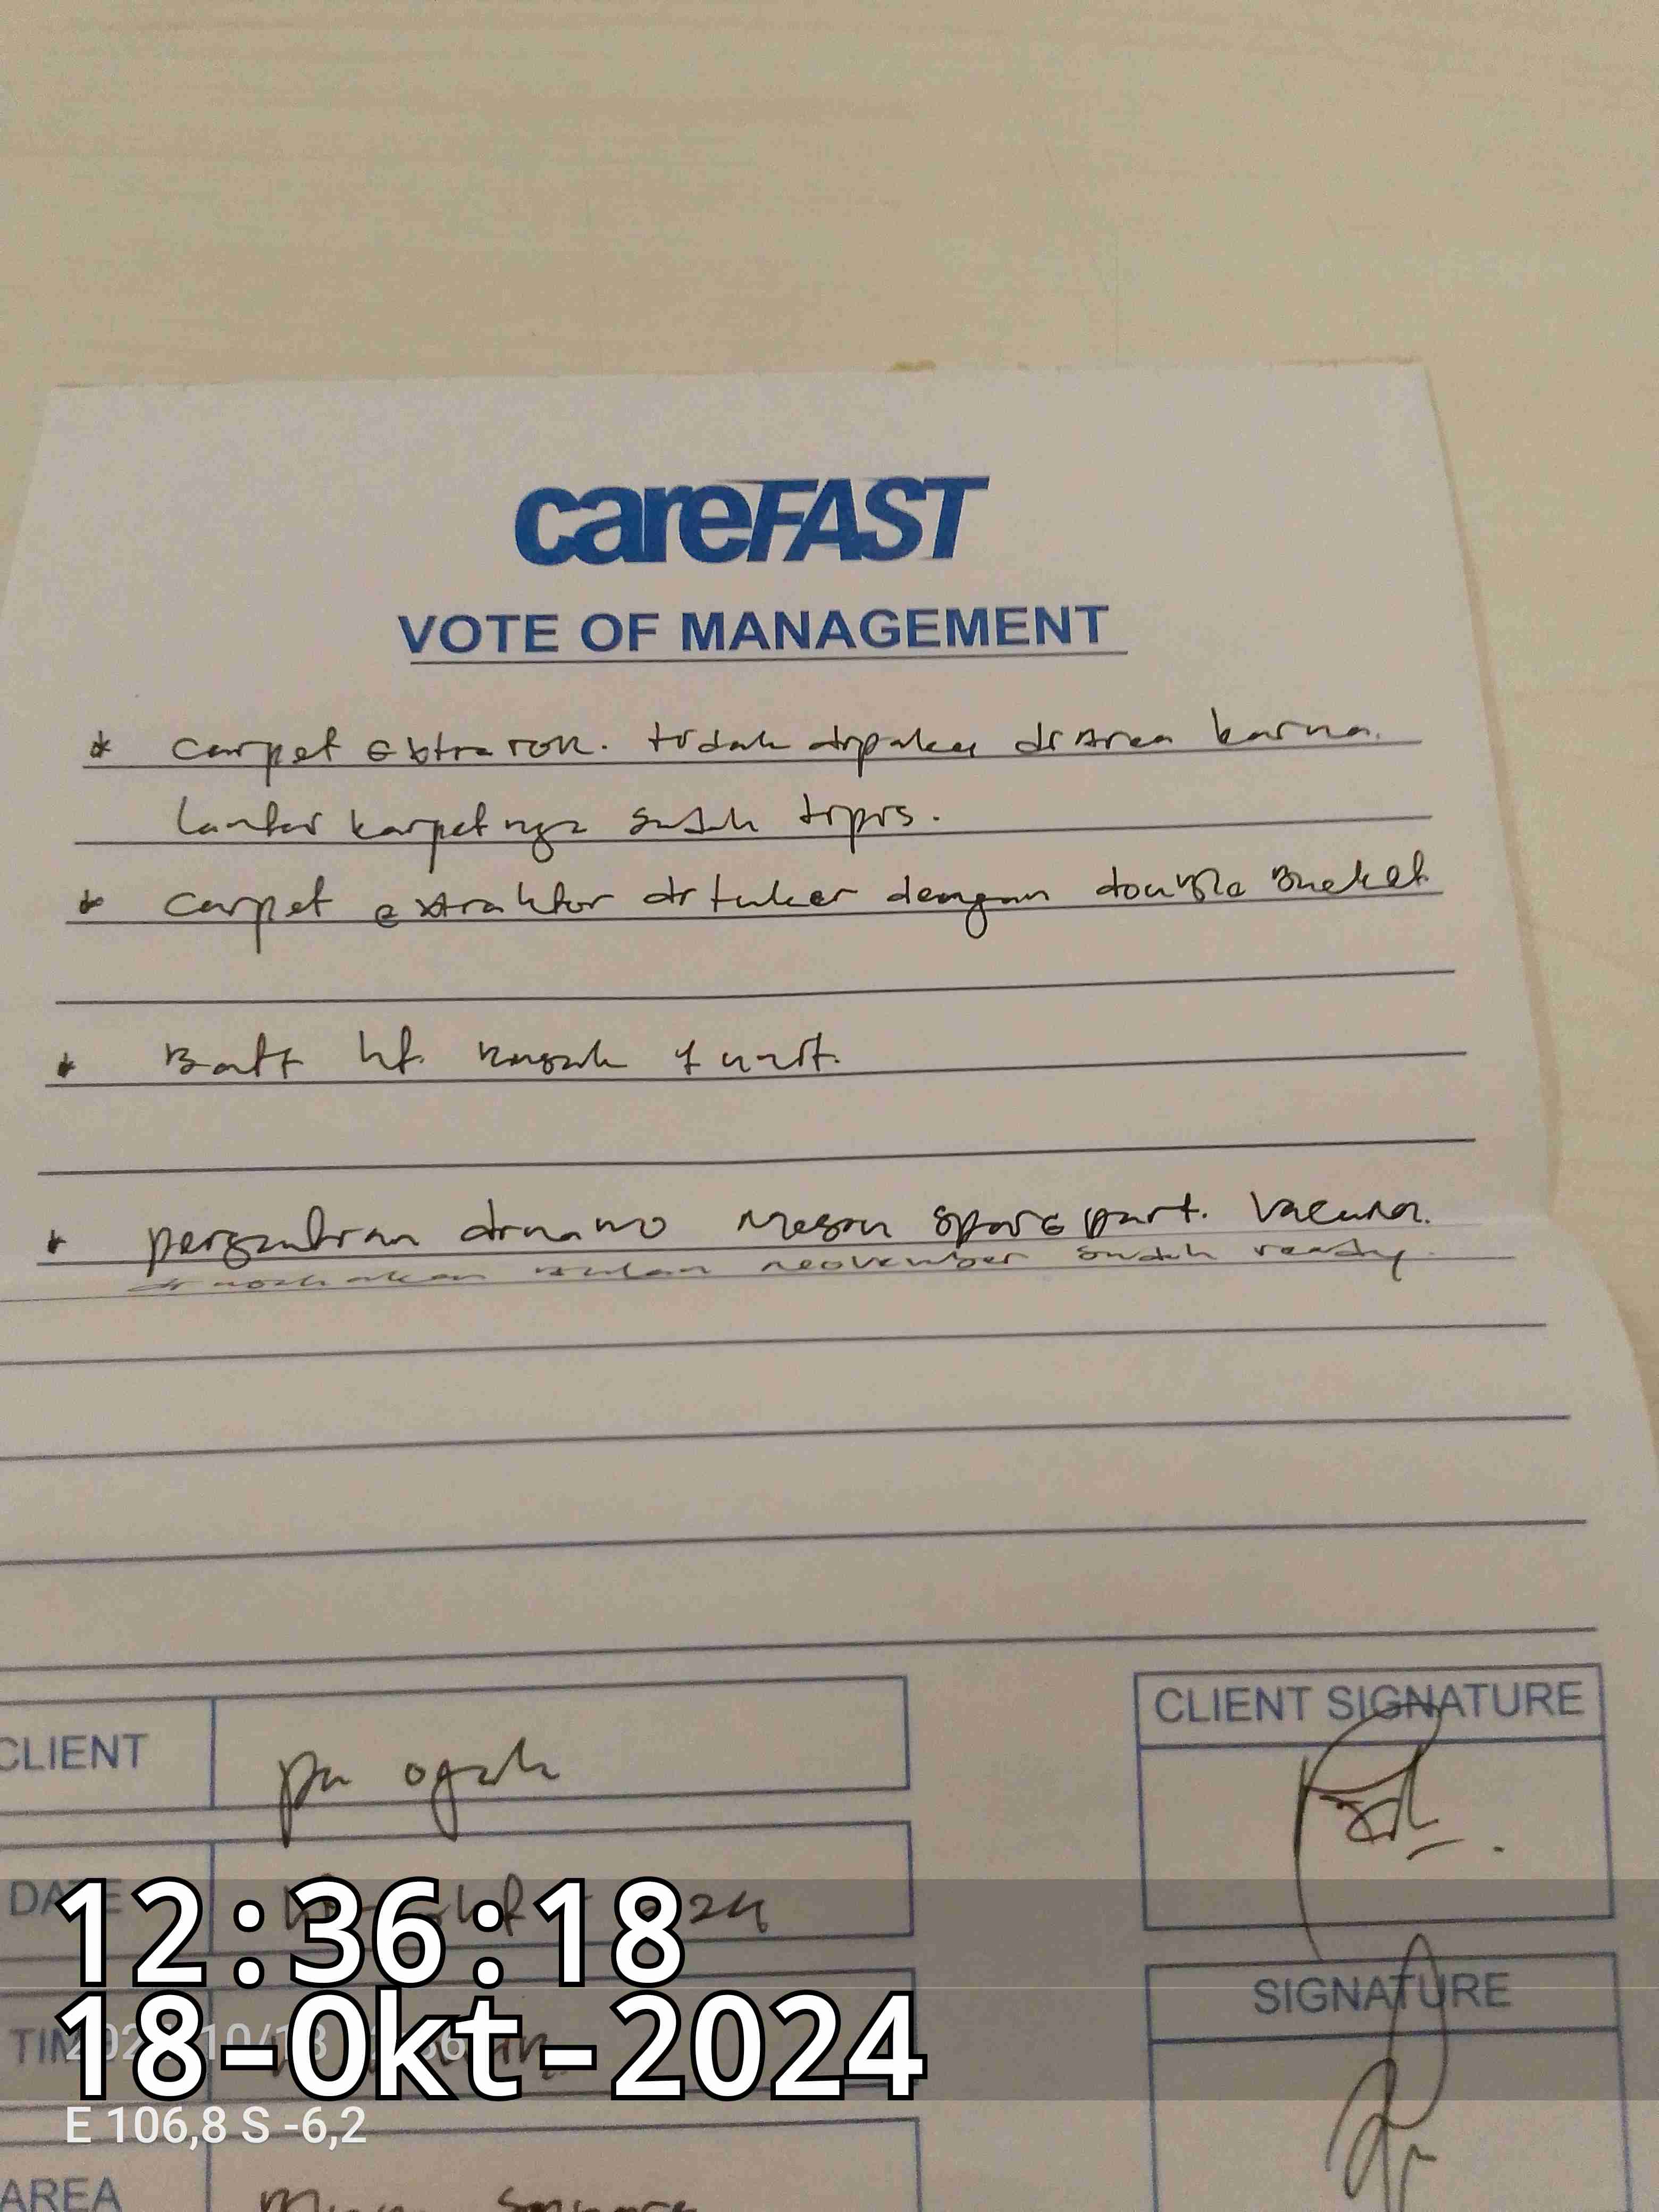 careFAST
VOTE OF MANAGEMENT
* carpet extraton. tidak dipakai di Area karna.
lantai karpetnya sudah tipis.
* carpet extraktor di tuker dengan double Bucket
* Batt ht. Rusak 1 unit.
* pergantian dinamo Mesin sparepart. Vacum.
di usahakan bulan neovember sudah ready.
CLIENT
pa ogah
CLIENT SIGNATURE
DATE
SIGNATURE
12:36:18
18-Okt-2024
E 106,8 S -6,2
AREA